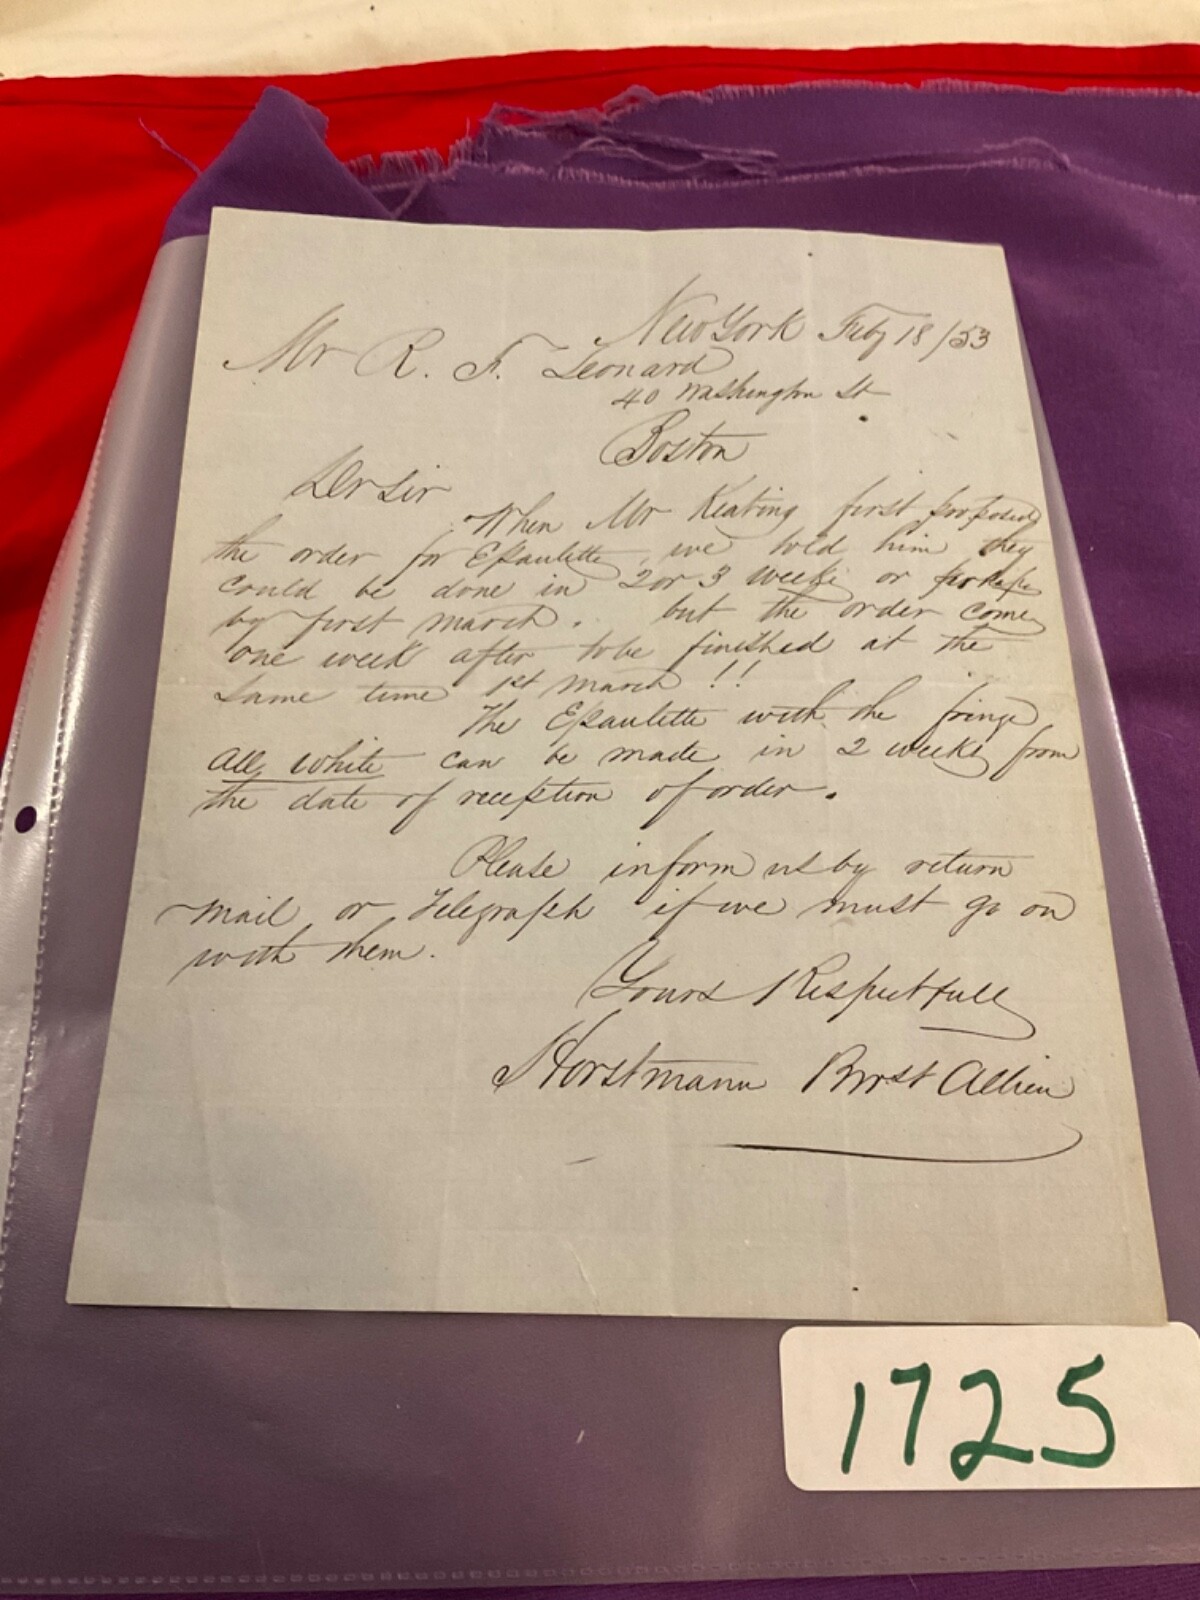 New York Feby 18/53
Mr R. F. Leonard
40 Washington St
Boston
Dr Sir
When Mr Keating first proposed
the order for Epaulette, we told him they
could be done in 2 or 3 weeks or perhaps
by first march. but the order come
one week after to be finished at the
same time 1st march !!
The Epaulette with the fringe
all white can be made in 2 weeks from
the date of reception of order.
Please inform us by return
mail or Telegraph if we must go on
with them.
Yours Respectfull
Horstmann Bros & Allien
1725